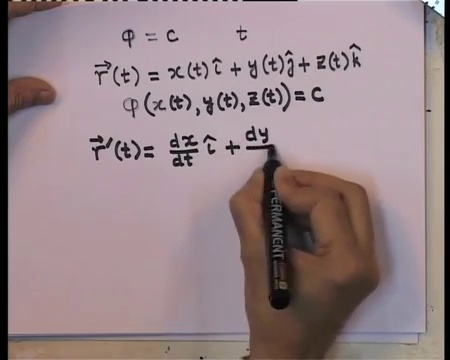 φ = c t
r⃗(t) = x(t)î + y(t)ĵ + z(t)k̂
φ(x(t), y(t), z(t)) = c
r⃗'(t) = dx/dt î + dy/
PERMANENT